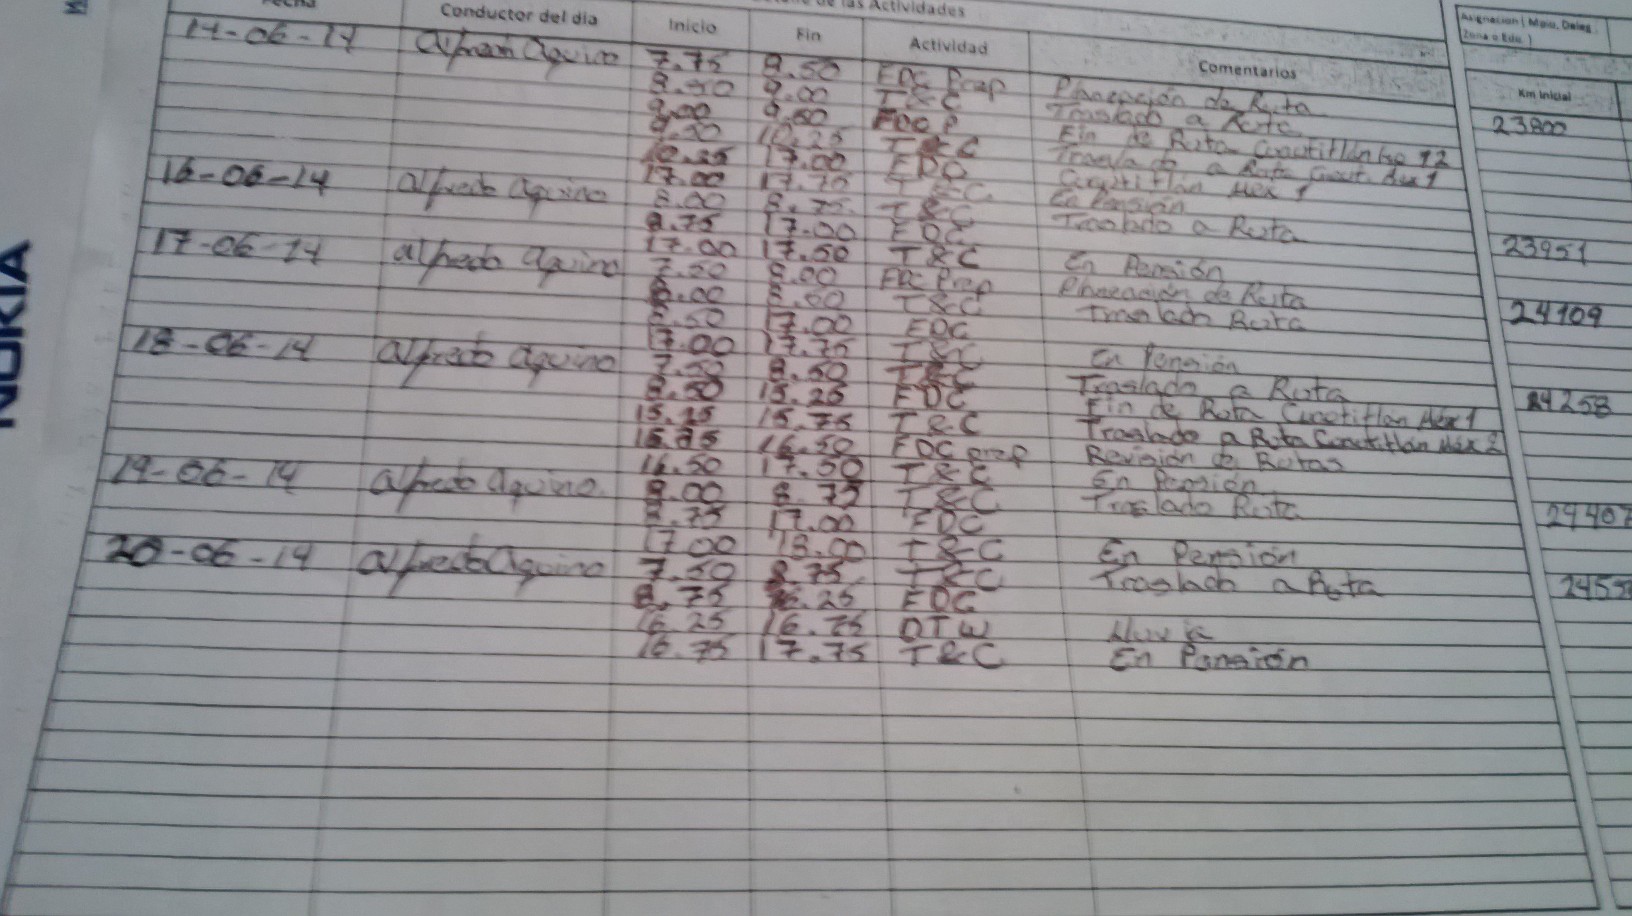 Fecha Conductor del día Inicio Fin Actividad Comentarios
de las Actividades
Asignacion ( Mpio. Deleg. Zona o Edo. )
Km Inicial
NOKIA
14-06-14 Alfredo Aquino 7.75 8.50 EDC Prep Planeación de Ruta
8.50 9.00 T&C Traslado a Ruta 23800
9.00 9.50 Fin de Ruta Cuautitlán
10.25 T&C Traslado a Ruta
10.25 17.00 EDC Cuautitlan Mex 1
17.00 17.75 T&C En Pensión
16-06-14 Alfredo Aquino 8.00 8.75 T&C Traslado a Ruta
8.75 17.00 EDC 23951
17.00 17.50 T&C En Pensión
17-06-14 Alfredo Aquino 7.50 8.00 EDC Prep Planeación de Ruta
8.00 8.50 T&C Traslado Ruta 24109
8.50 17.00 EDC
17.00 17.75 T&C En Pensión
18-06-14 Alfredo Aquino 7.50 8.50 T&C Traslado a Ruta
8.50 15.25 EDC Fin de Ruta Cuautitlan Méx 1 24258
15.25 15.75 T&C Traslado a Ruta Cuautitlan Méx 2
15.75 16.50 EDC prep Revisión de Rutas
16.50 17.50 T&C En Pensión
19-06-14 Alfredo Aquino 8.00 8.75 T&C Traslado Ruta
8.75 17.00 EDC 24407
17.00 18.00 T&C En Pensión
20-06-14 Alfredo Aquino 7.50 8.75 T&C Traslado a Ruta
8.75 16.25 EDC
16.25 16.75 DTW Lluvia
16.75 17.75 T&C En Pensión